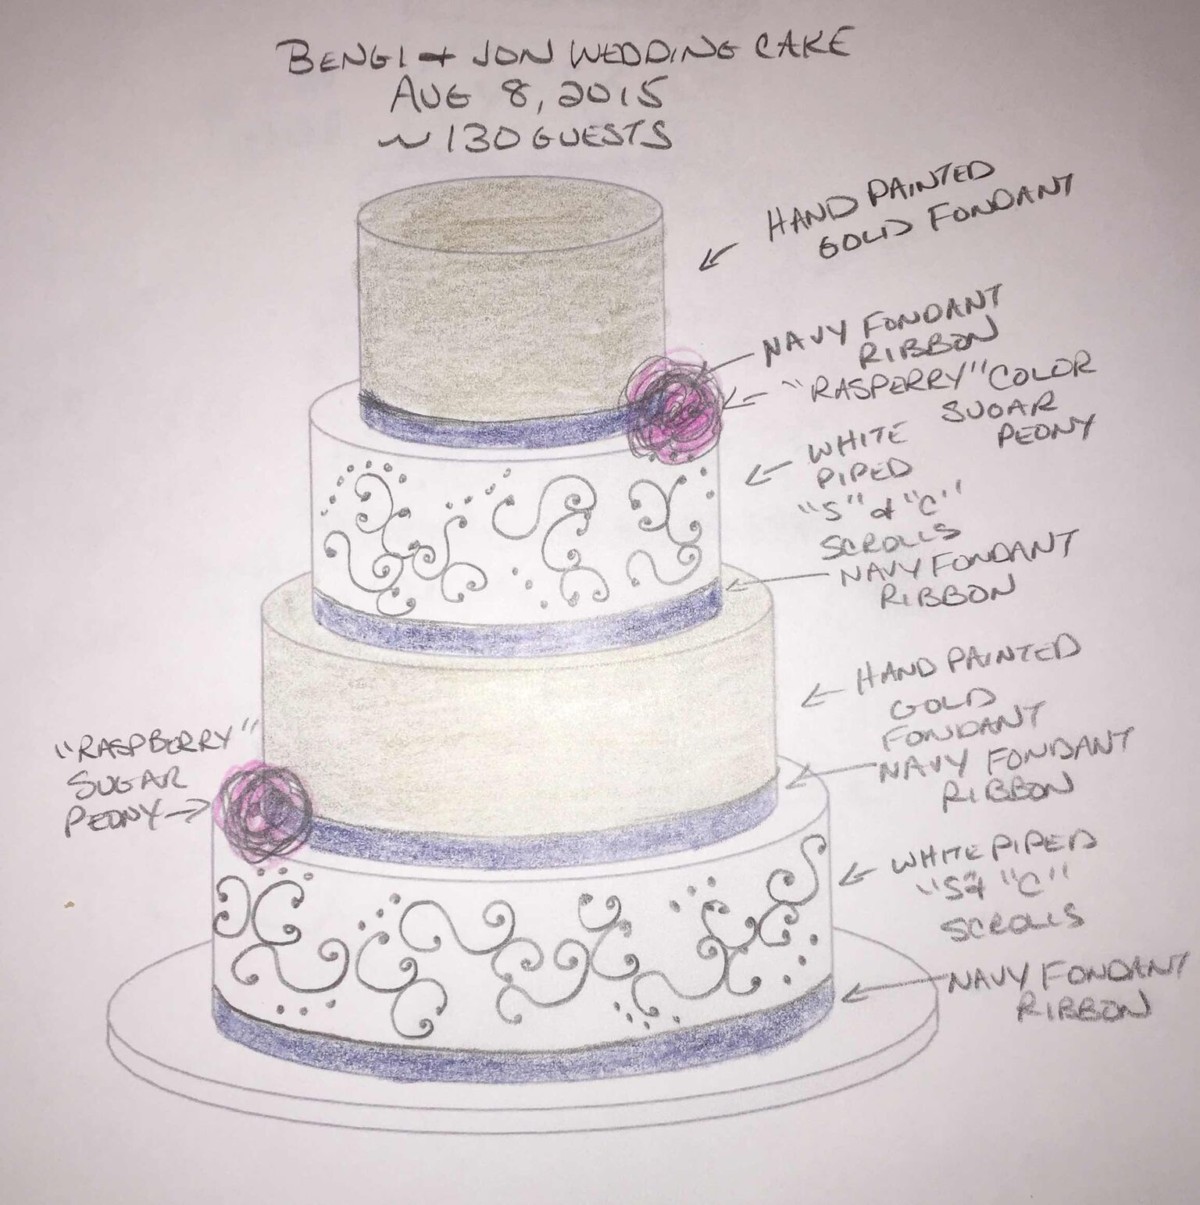 BENGI + JON WEDDING CAKE
AUG 8, 2015
~ 130 GUESTS
HAND PAINTED
GOLD FONDANT
NAVY FONDANT
RIBBON
"RASPERRY" COLOR
SUGAR
PEONY
WHITE
PIPED
"S" & "C"
SCROLLS
NAVY FONDANT
RIBBON
HAND PAINTED
GOLD
FONDANT
NAVY FONDANT
RIBBON
"RASPBERRY"
SUGAR
PEONY
WHITE PIPED
"S & "C"
SCROLLS
NAVY FONDANT
RIBBON